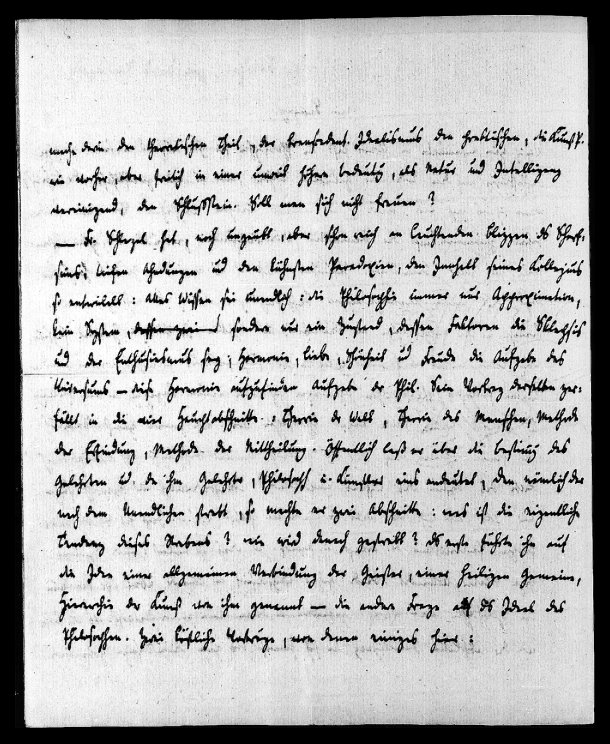 mache darin den theoretischen Theil, der transcendent. Idealismus den praktischen, die Kunstph.
wie vorher, aber freilich in einer weit höhern bedeutg, als Natur und Intelligenz
vereinigend, den Schlußstein. Soll man sich nicht freuen?
— Fr. Schlegel hat, noch ungeübt, aber schon reich an leuchtenden Blizzen des Scharf-
sinns, kühnen Ahndungen und den kühnsten Paradoxien, den Innhalt seines Kollegius
so entwikelt: Alles Wissen sei unendlich: die Philosophie immer nur Approximation,
kein System, sondern nur ein Zustand, dessen Faktoren die Skepsis
und der Enthusiasmus sey; Harmonie, Liebe, Schönheit und Freude die Aufgabe des
Universums — diese Harmonie aufzufinden Aufgabe der Phil. Sein Vortrag derselben zer-
fällt in die vier Hauptabschnitte: Theorie der Welt, Theorie des Menschen, Methode
der Erfindung, Methode der Mittheilung. Öffentlich las er über die bestimmg des
Gelehrten und da ihm Gelehrter, Philosoph u. Künstler eins andeutet, den nämlich der
nach dem Unendlichen strebt, so machte er zwei Abschnitte: was ist die eigentliche
Tendenz dieses Strebens? wie wird darnach gestrebt? das erste führte ihn auf
die Idee einer allgemeinen Verbindung der Geister, einer heiligen Gemeine,
Hierarchie der Kunst von ihm genannt — die andre Frage auf das Ideal des
Philosophen. Zwei köstliche Vorträge, von denen einiges hier: